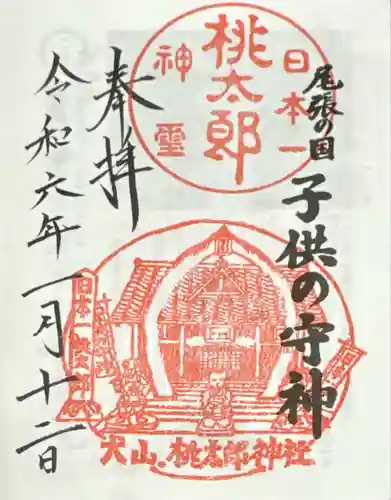 尾張の国
子供の守神
日本一
桃太郎
神霊
奉拝
令和六年一月十二日
日本一桃太郎
犬山・桃太郎神社